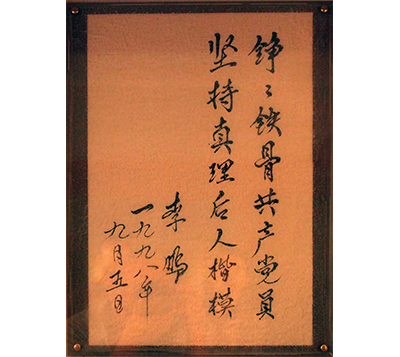 铮々铁骨共产党员
坚持真理后人楷模
李鹏
一九九八年
九月五日